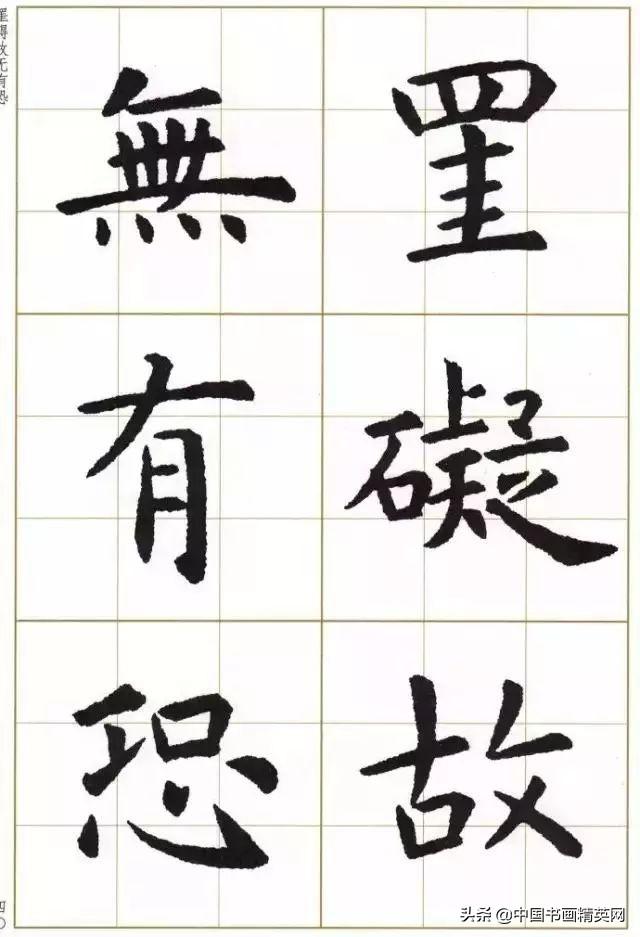 罣礙故
無有恐
罣碍故无有恐
四〇
头条 @中国书画精英网